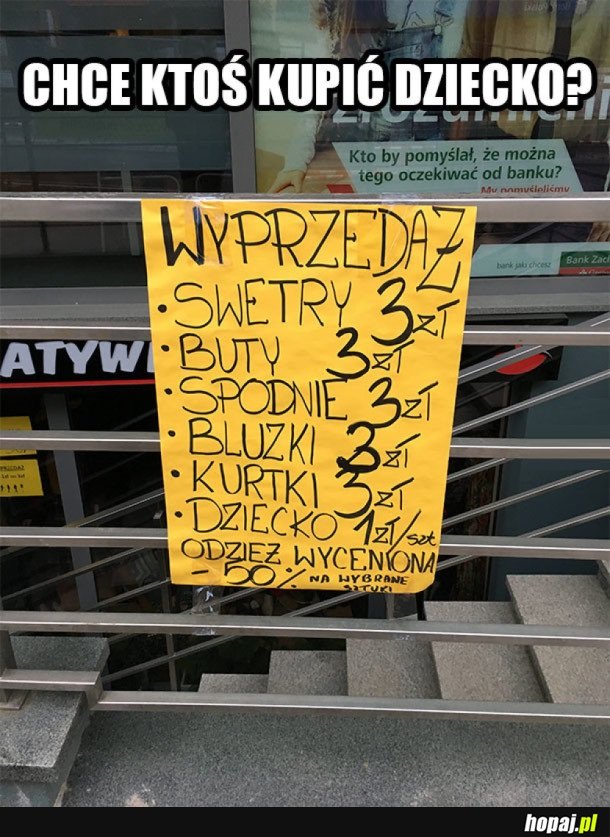 CHCE KTOŚ KUPIĆ DZIECKO?
Kto by pomyślał, że można
tego oczekiwać od banku?
My pomyśleliśmy
bank jaki chcesz
WYPRZEDAŻ
• SWETRY 3zł
• BUTY 3zł
• SPODNIE 3zł
• BLUZKI 3zł
• KURTKI 3zł
• DZIECKO 1zł/szt
ODZIEŻ WYCENIONA
- 50% NA WYBRANE
SZTUKI
hopaj.pl